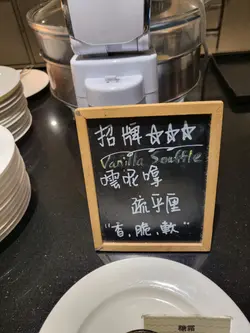 招牌☆☆☆
Vanilla Souffle
雲呢拿
疏乎厘
"香,脆,軟"
糖霜